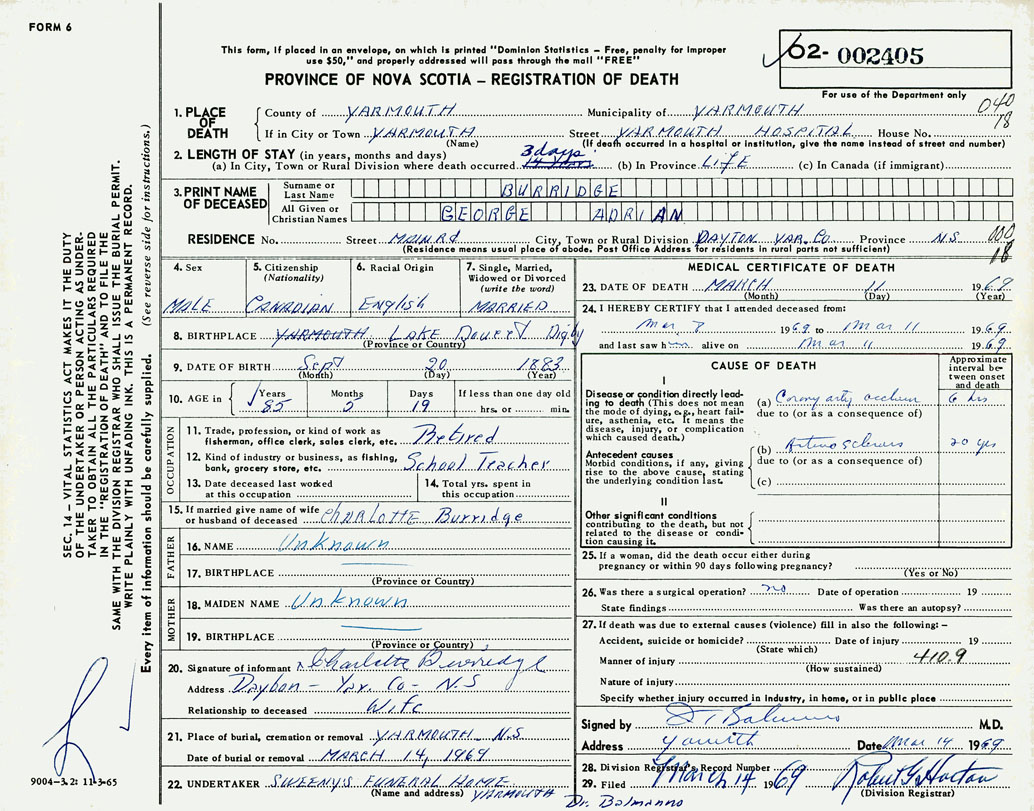 FORM 6
This form, if placed in an envelope, on which is printed "Dominion Statistics – Free, penalty for improper
use $50," and properly addressed will pass through the mail "FREE"
PROVINCE OF NOVA SCOTIA – REGISTRATION OF DEATH
62- 002405
For use of the Department only
040
18
1. PLACE OF DEATH
County of YARMOUTH Municipality of YARMOUTH
If in City or Town YARMOUTH Street YARMOUTH HOSPITAL House No.
(Name) (If death occurred in a hospital or institution, give the name instead of street and number)
2. LENGTH OF STAY (in years, months and days) 3 days
(a) In City, Town or Rural Division where death occurred (b) In Province LIFE (c) In Canada (if immigrant)
3. PRINT NAME OF DECEASED
Surname or Last Name BURRIDGE
All Given or Christian Names GEORGE ADRIAN
RESIDENCE No. Street MAIN Rd City, Town or Rural Division DAYTON YAR. Co Province N.S
(Residence means usual place of abode. Post Office Address for residents in rural parts not sufficient)
000
18
4. Sex MALE
5. Citizenship (Nationality) CANADIAN
6. Racial Origin English
7. Single, Married, Widowed or Divorced (write the word) MARRIED
8. BIRTHPLACE YARMOUTH LAKE Digby
(Province or Country)
9. DATE OF BIRTH Sept 20 1883
(Month) (Day) (Year)
10. AGE in Years 85 Months 5 Days 19 If less than one day old hrs. or min.
OCCUPATION
11. Trade, profession or kind of work as
fisherman, office clerk, sales clerk, etc. Retired
12. Kind of industry or business, as fishing,
bank, grocery store, etc. School Teacher
13. Date deceased last worked
at this occupation
14. Total yrs. spent in
this occupation
15. If married give name of wife
or husband of deceased CHARLOTTE Burridge
FATHER
16. NAME Unknown
17. BIRTHPLACE
(Province or Country)
MOTHER
18. MAIDEN NAME Unknown
19. BIRTHPLACE
(Province or Country)
20. Signature of informant Charlotte Burridge
Address Dayton - Yar. Co - N.S
Relationship to deceased Wife
21. Place of burial, cremation or removal YARMOUTH N.S
Date of burial or removal MARCH 14, 1969
22. UNDERTAKER SWEENY'S FUNERAL HOME
(Name and address) YARMOUTH
MEDICAL CERTIFICATE OF DEATH
23. DATE OF DEATH MARCH 11 1969
(Month) (Day) (Year)
24. I HEREBY CERTIFY that I attended deceased from:
Mar 8 1969 to Mar 11 1969
and last saw him alive on Mar 11 1969
CAUSE OF DEATH
Approximate interval between onset and death
I
Disease or condition directly leading
to death (This does not mean
the mode of dying, e.g., heart failure,
asthenia, etc. It means the
disease, injury, or complication
which caused death.)
(a) 6 hrs
due to (or as a consequence of)
(b) 20 yrs
due to (or as a consequence of)
(c)
Antecedent causes
Morbid conditions, if any, giving
rise to the above cause, stating
the underlying condition last.
II
Other significant conditions
contributing to the death, but not
related to the disease or condition
causing it.
25. If a woman, did the death occur either during
pregnancy or within 90 days following pregnancy?
(Yes or No)
26. Was there a surgical operation? no Date of operation 19
State findings Was there an autopsy?
27. If death was due to external causes (violence) fill in also the following: –
Accident, suicide or homicide? Date of injury 19
(State which)
Manner of injury 410.9
(How sustained)
Nature of injury
Specify whether injury occurred in industry, in home, or in public place
Signed by M.D.
Address Date Mar 14 1969
28. Division Registrar's Record Number
29. Filed March 14 1969 Robert G Horton
(Division Registrar)
Dr. Balmanno
SEC. 14 – VITAL STATISTICS ACT MAKES IT THE DUTY
OF THE UNDERTAKER OR PERSON ACTING AS UNDER-
TAKER TO OBTAIN ALL THE PARTICULARS REQUIRED
IN THE "REGISTRATION OF DEATH" AND TO FILE THE
SAME WITH THE DIVISION REGISTRAR WHO SHALL ISSUE THE BURIAL PERMIT.
WRITE PLAINLY WITH UNFADING INK. THIS IS A PERMANENT RECORD.
Every item of information should be carefully supplied. (See reverse side for instructions.)
9004-3.2: 11-3-65